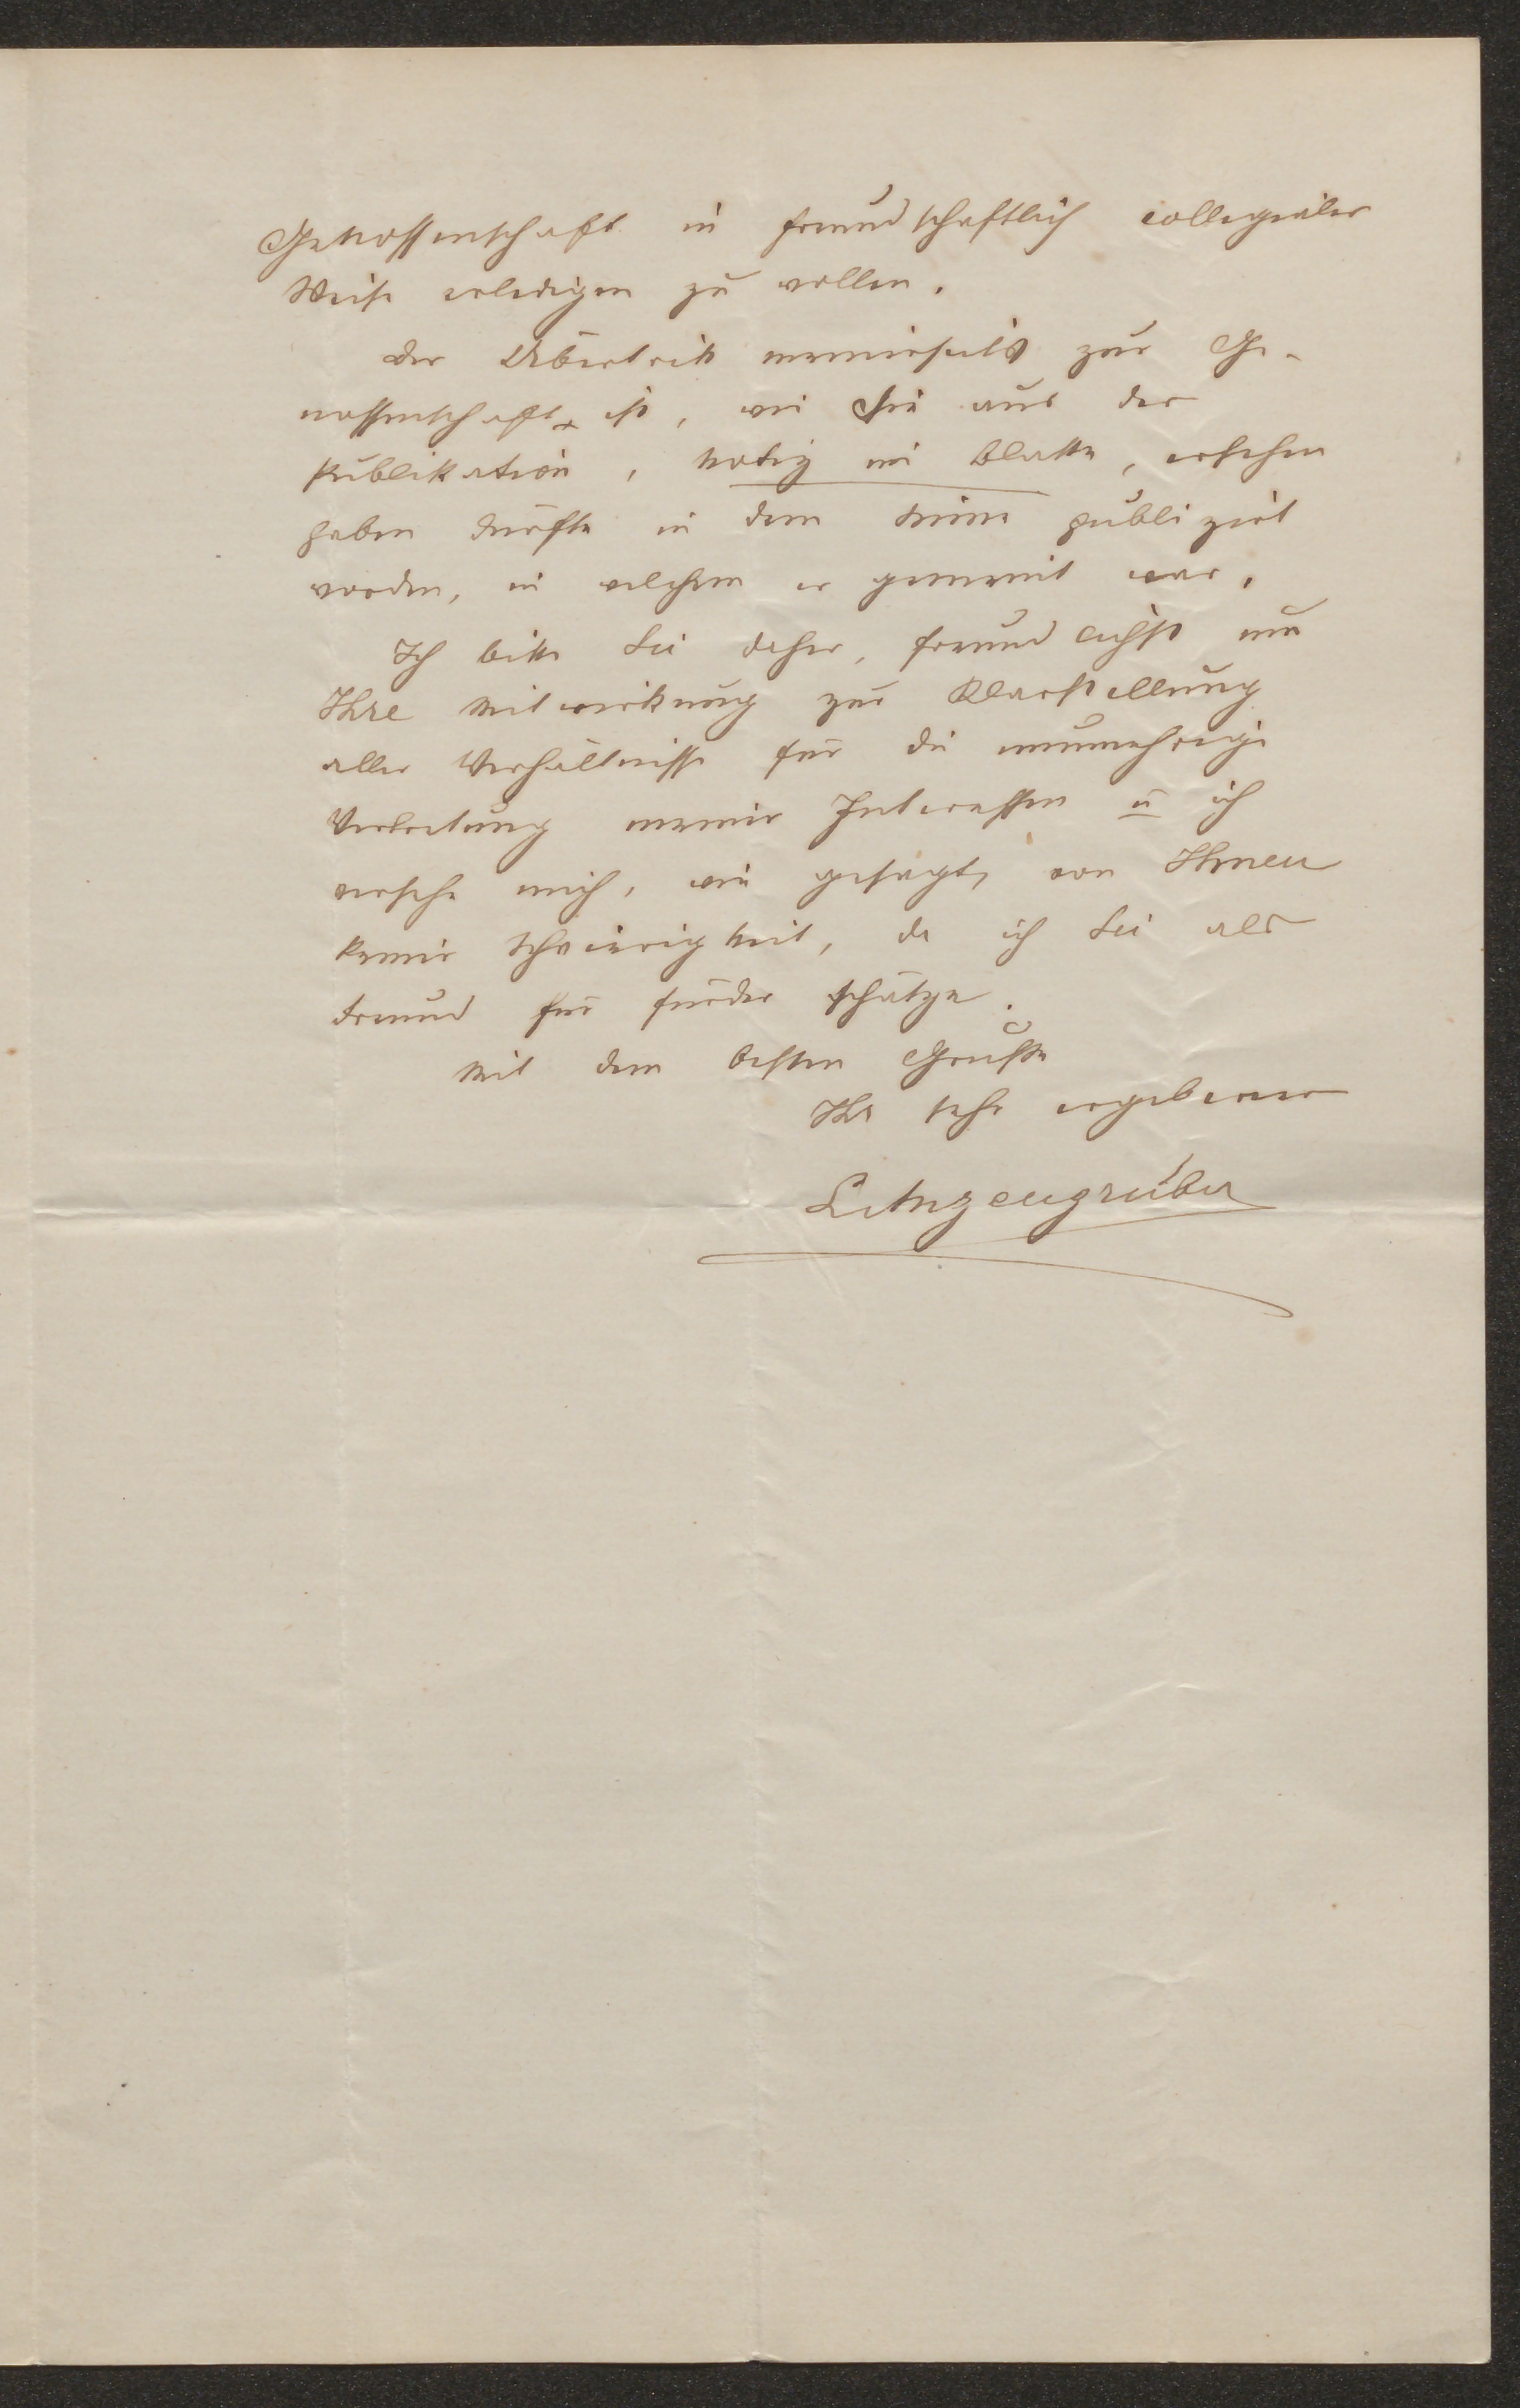 Genossenschaft in freundschaftlich collegialer
Weise erledigen zu wollen.
Der Übertritt meinerseits zur Ge-
nossenschaft ist, wie Sie aus der
Publikation, Notiz im Blatte, ersehen
haben dürften in dem Sinne publizirt
worden, in welchem er gemeint war.
Ich bitte Sie daher, freundlichst um
Ihre Mitwirkung zur Klarstellung
aller Verhältnisse für die nunmehrige
Vertretung meiner Interessen u ich
versehe mich, wie gesagt, von Ihnen
keiner Schwierigkeit, da ich Sie als
Freund für fürder schätze.
Mit dem besten Gruße
Ihr sehr ergebener
L Anzengruber